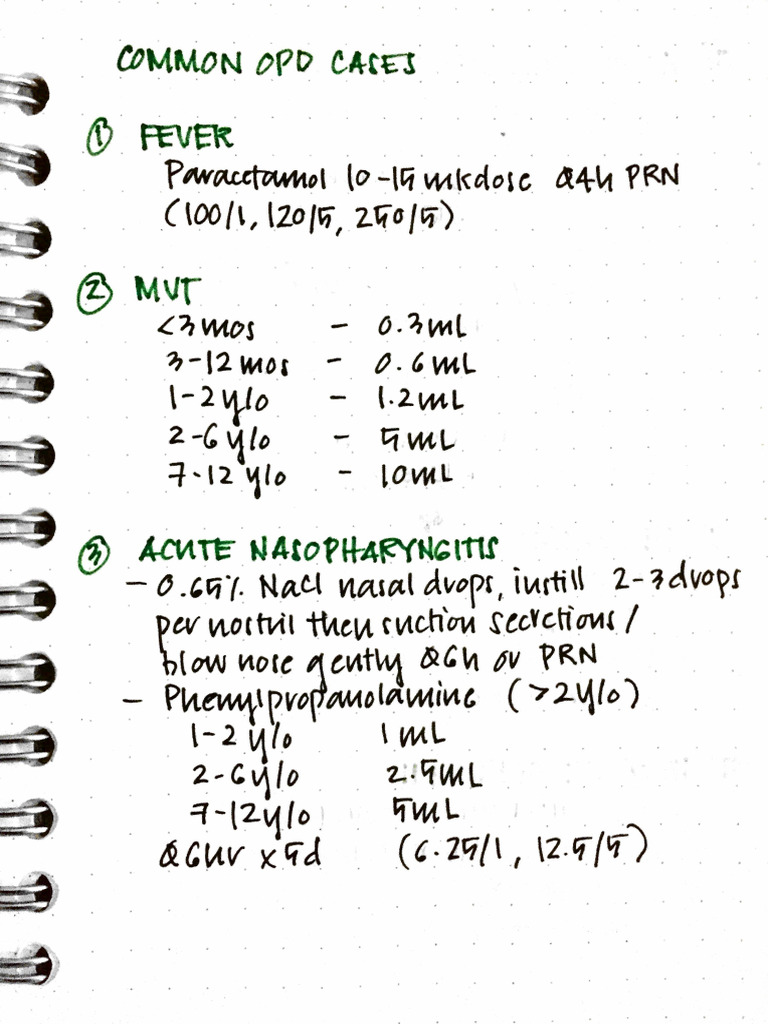 COMMON OPD CASES
① FEVER
Paracetamol 10-15 mkdose Q4h PRN
(100/1, 120/5, 250/5)
② MVT
<3 mos - 0.3 mL
3-12 mos - 0.6 mL
1-2 y/o - 1.2 mL
2-6 y/o - 5 mL
7-12 y/o - 10 mL
③ ACUTE NASOPHARYNGITIS
- 0.65% NaCl nasal drops, instill 2-3 drops
per nostril then suction secretions /
blow nose gently Q6h or PRN
- Phenylpropanolamine (>2 y/o)
1-2 y/o 1 mL
2-6 y/o 2.5 mL
7-12 y/o 5 mL
Q6hr x 5d (6.25/1, 12.5/5)